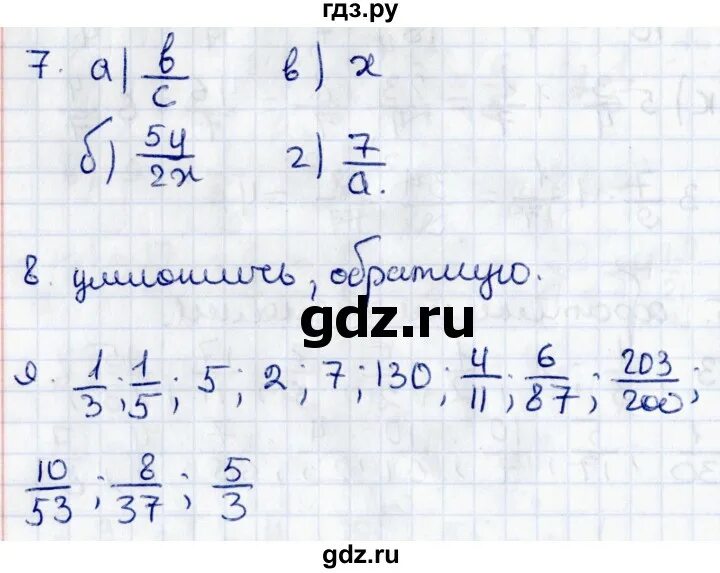 гдз.ру
7. а) b/c в) x
б) 5y/2x г) 7/a.
8. умножить, обратную.
gdz.ru
9. 1/3; 1/5; 5; 2; 7; 130; 4/11; 6/87; 203/200;
10/53; 8/37; 5/3
gdz.ru